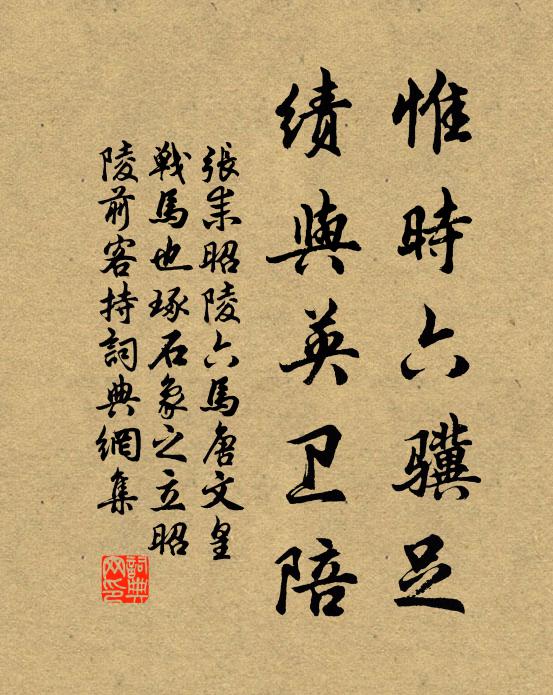 惟時六骥足
績與英卫陪
張耒昭陵六馬唐文皇
戰馬也琢石象之立昭
陵前客持詞典網集
詞典网印